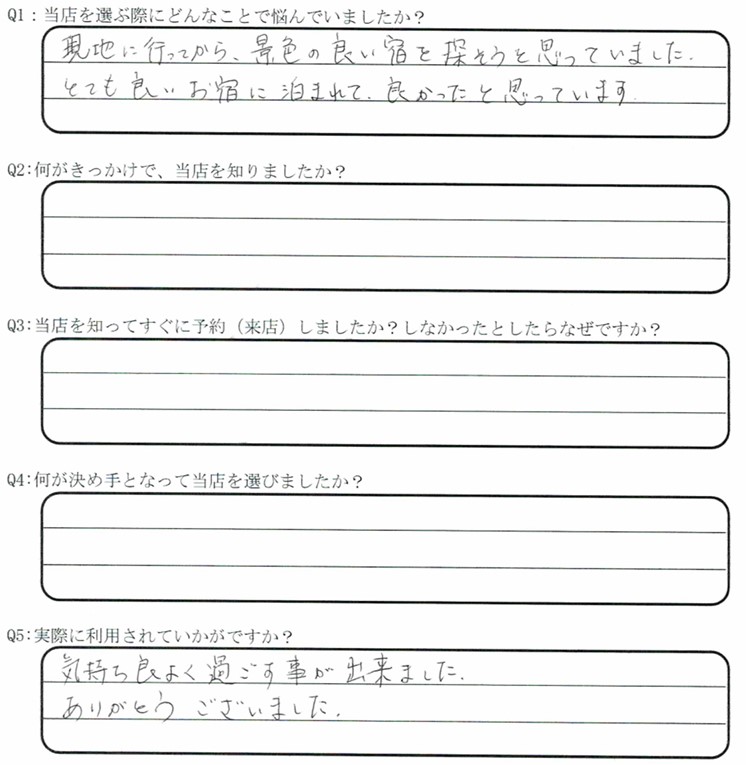 Q1：当店を選ぶ際にどんなことで悩んでいましたか？
現地に行ってから、景色の良い宿を探そうと思っていました.
とても良いお宿に泊まれて、良かったと思っています.
Q2：何がきっかけで、当店を知りましたか？
Q3：当店を知ってすぐに予約（来店）しましたか？しなかったとしたらなぜですか？
Q4：何が決め手となって当店を選びましたか？
Q5：実際に利用されていかがですか？
気持ち良よく過ごす事が出来ました.
ありがとうございました.